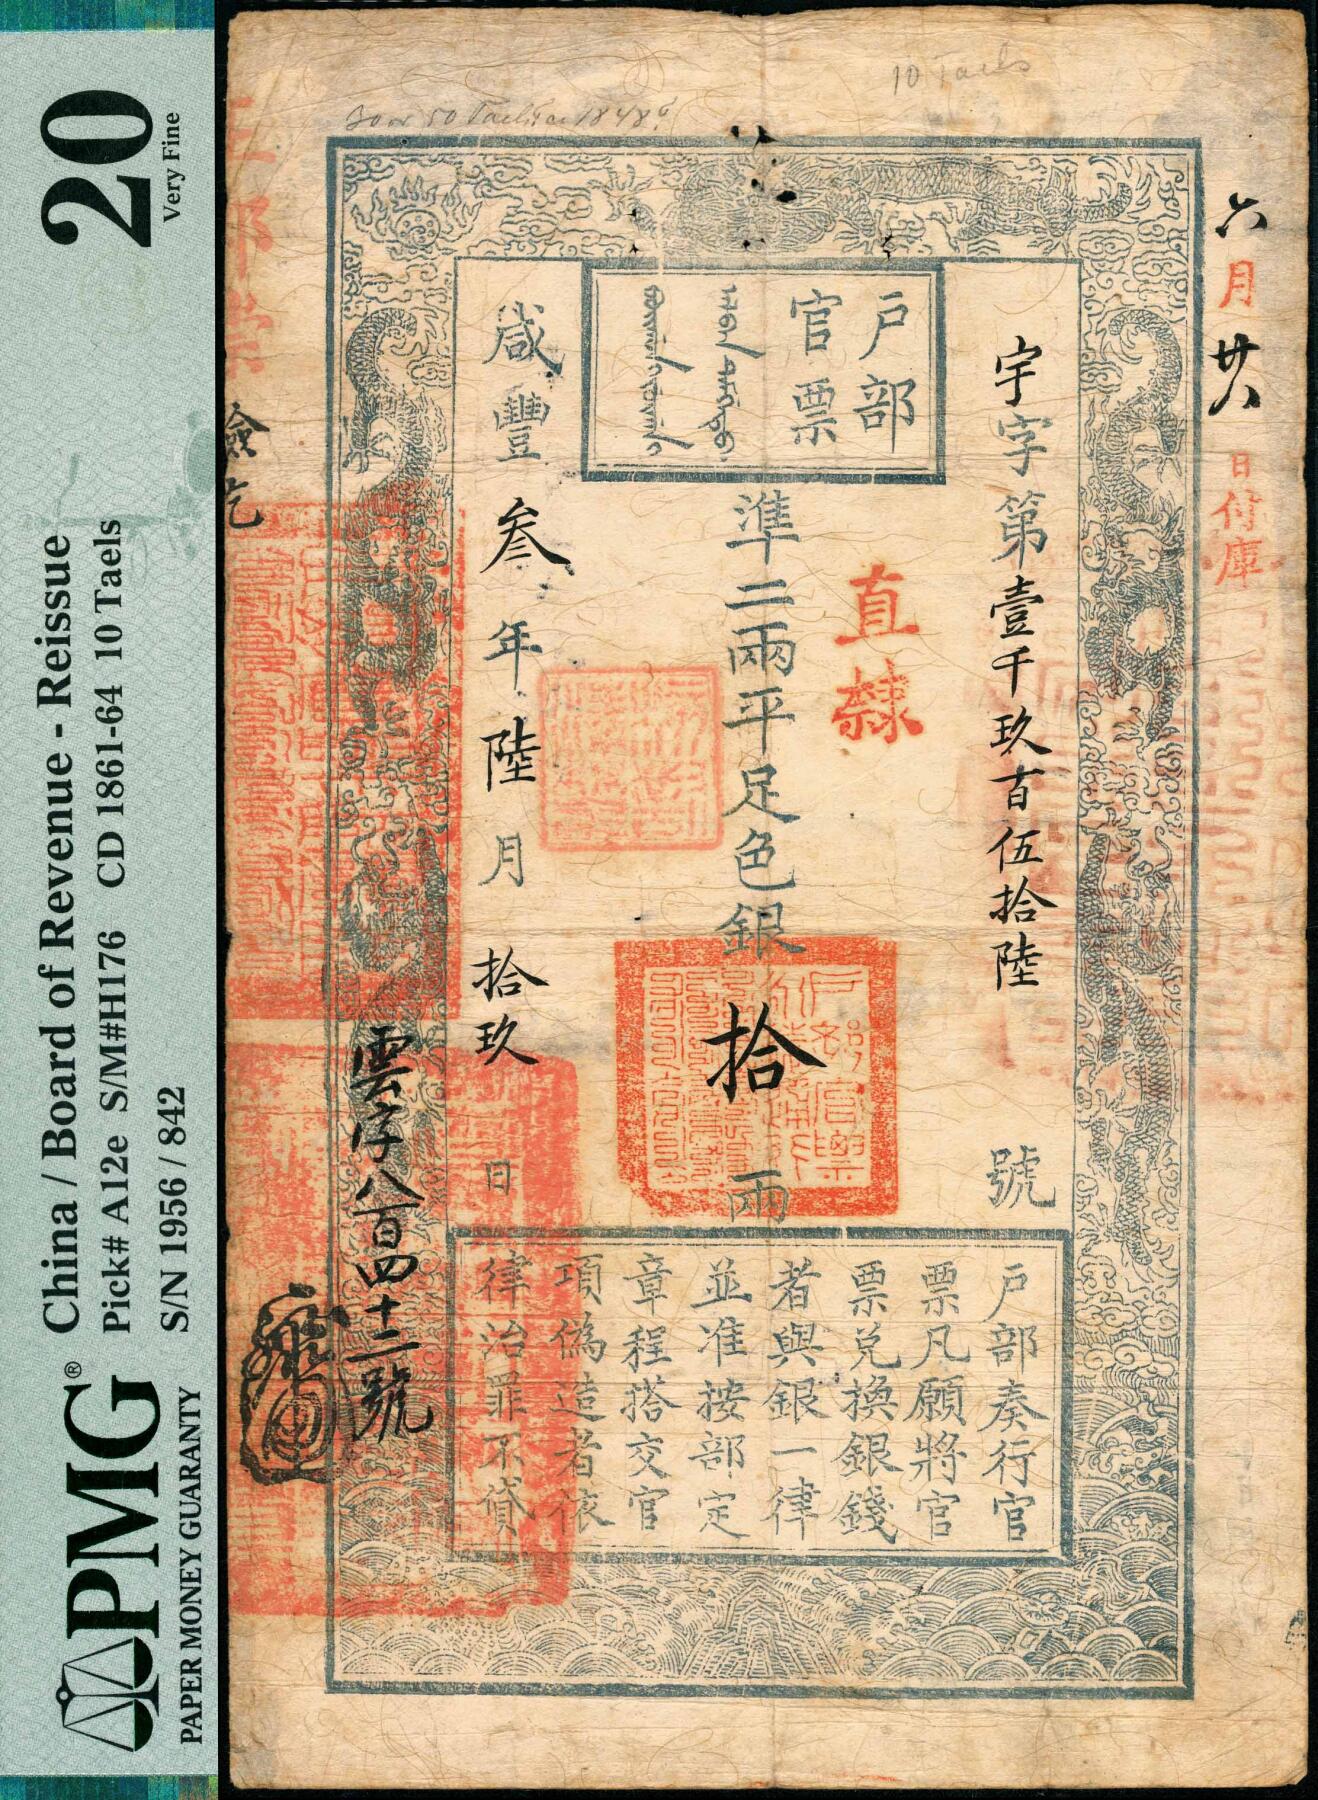 PMG®
PAPER MONEY GUARANTY
China / Board of Revenue - Reissue
Pick# A12e S/M#H176 CD 1861-64 10 Taels
S/N 1956 / 842
20
Very Fine
10 Taels
六月廿八日付庫
宇字第壹千玖百伍拾陸號
戶部
官票
直隸
準二兩平足色銀拾兩
咸豐叁年陸月拾玖日
戶部奏行官
票凡願將官
票兌換銀錢
者與銀一律
並准按部定
章程搭交官
項偽造者依
律治罪不貸
雲字八百四十二號